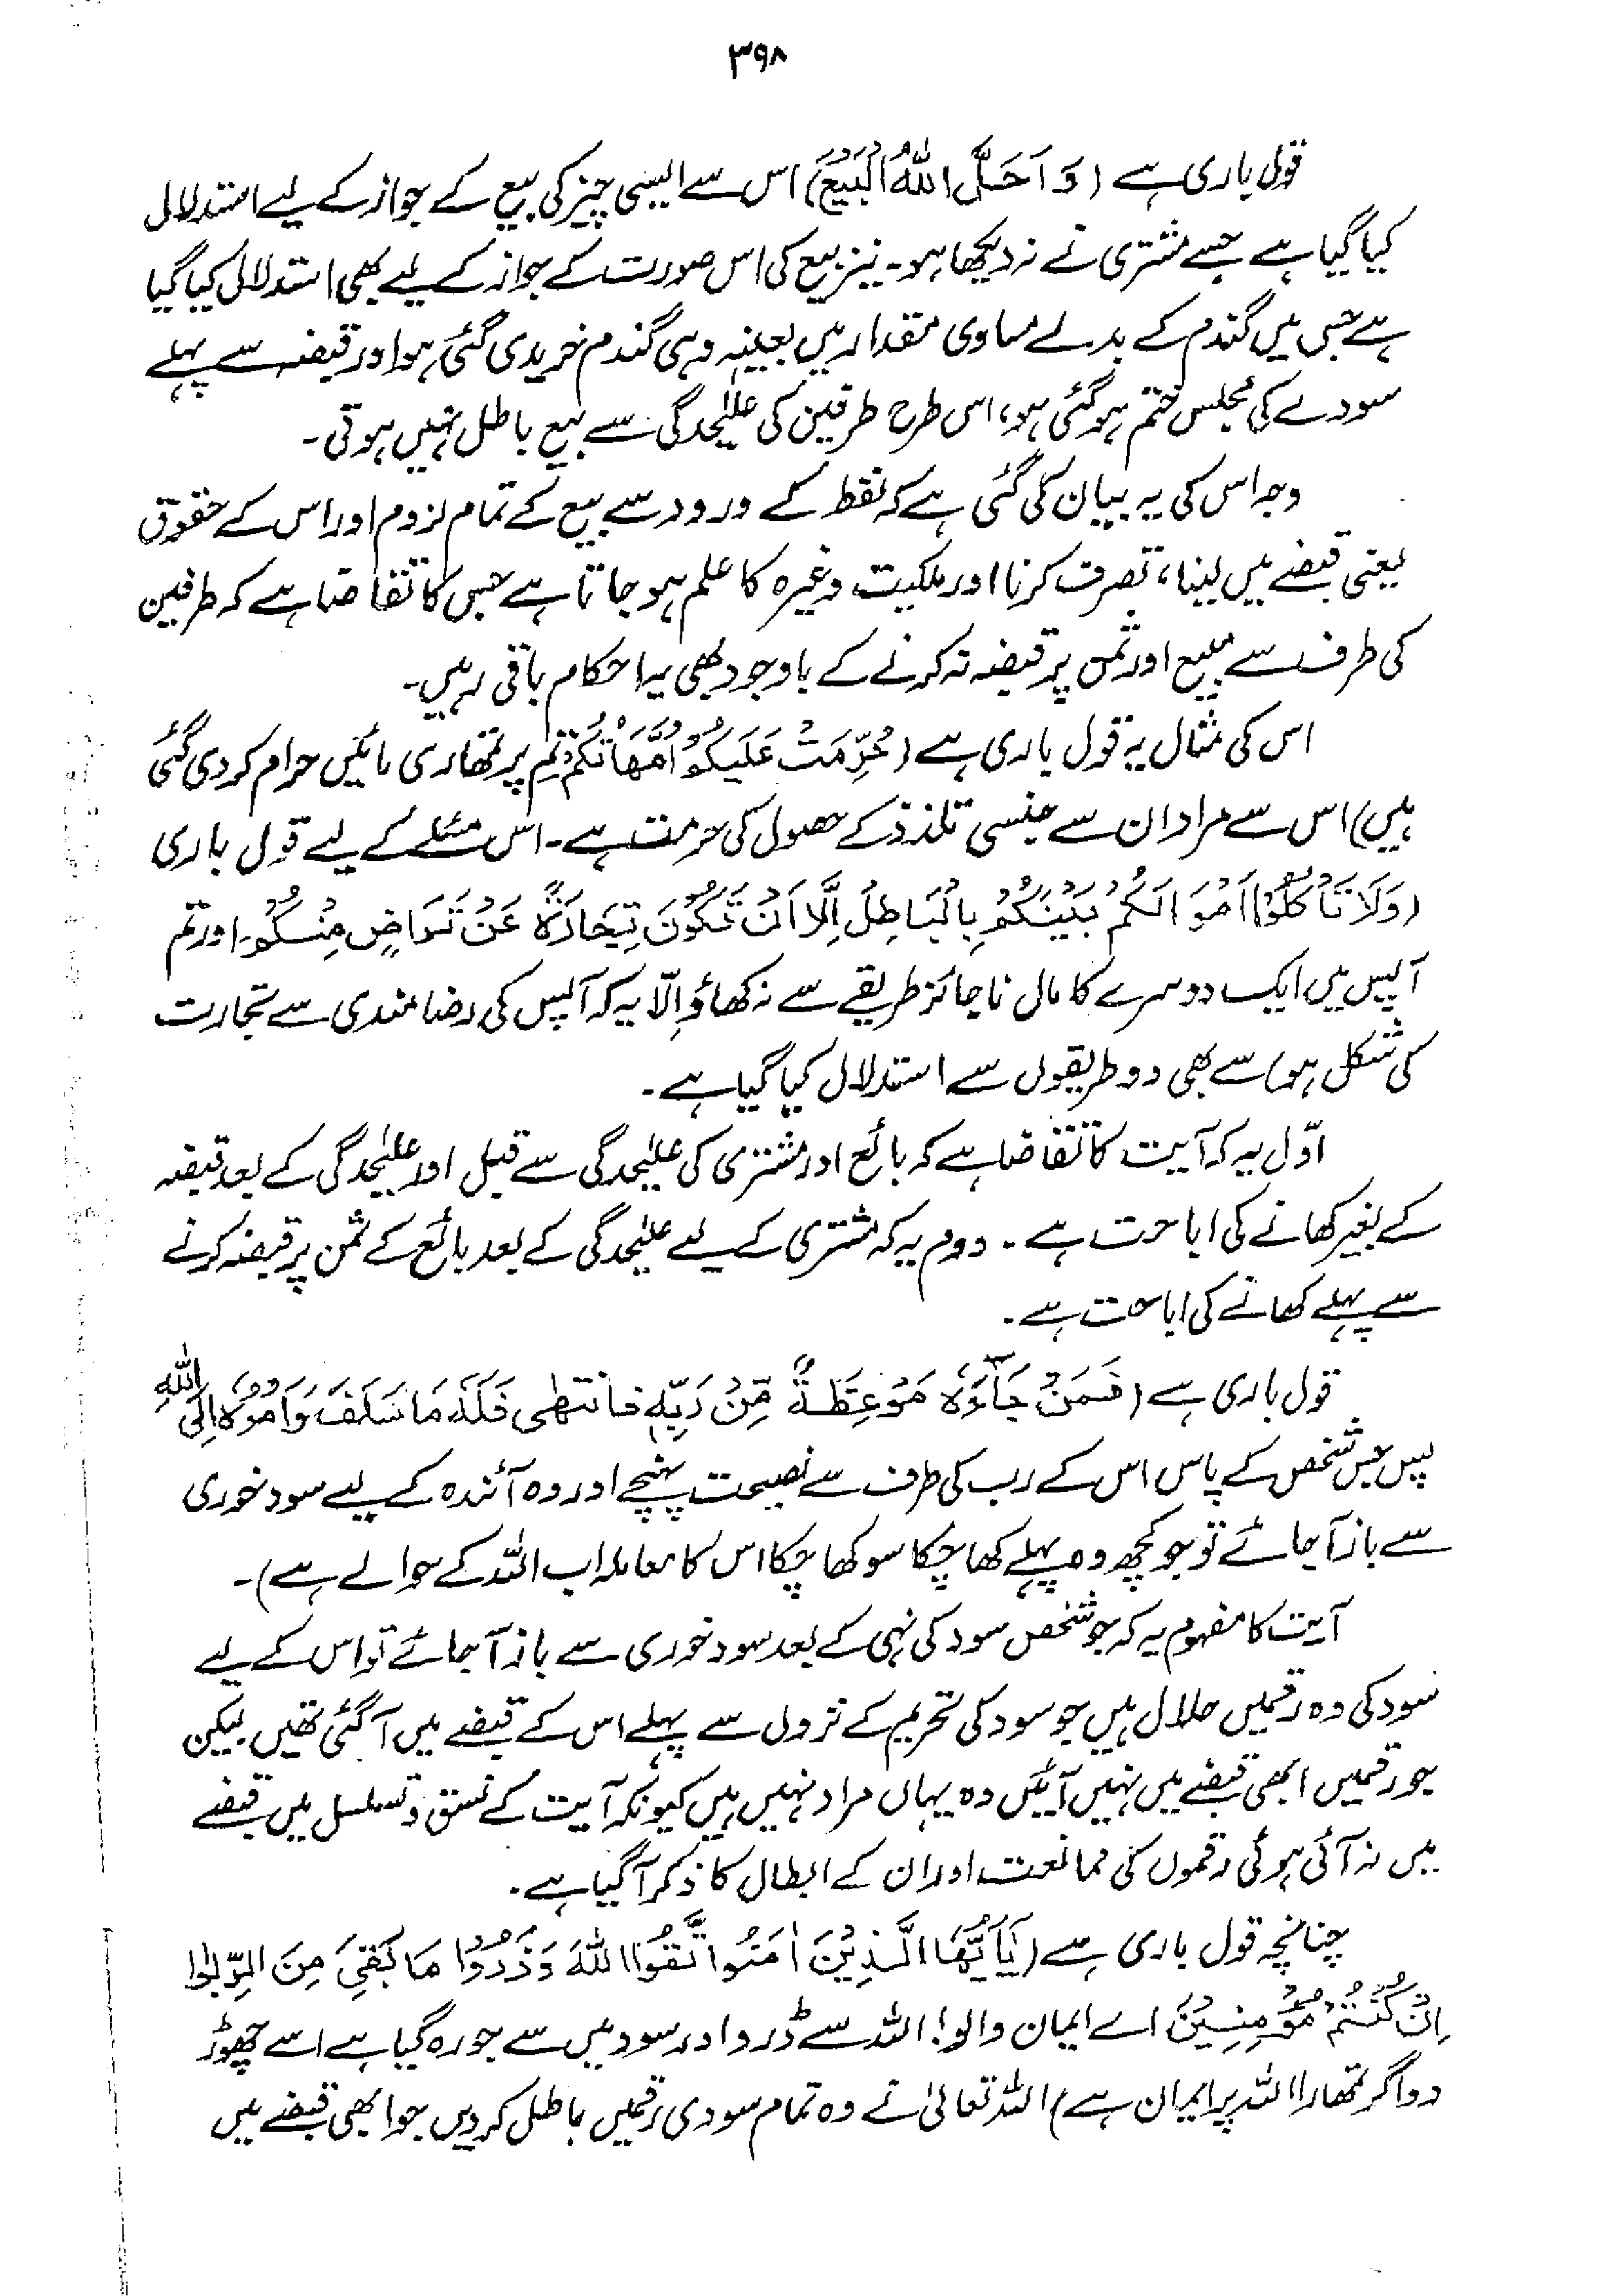 ۳۹۸
قول باری ہے (وَ اَحَلَّ اللّٰهُ الْبَيْعَ) اس سے ایسی چیز کی بیع کے جواز کے لیے استدلال
کیا گیا ہے جسے مشتری نے نہ دیکھا ہو۔ نیز بیع کی اس صورت کے جواز کے لیے بھی استدلال کیا گیا
ہے جس میں گندم کے بدلے مساوی مقدار میں بعینہٖ وہی گندم خریدی گئی ہو اور قبضہ سے پہلے
سودے کی مجلس ختم ہو گئی ہو، اس طرح طرفین کی علیٰحدگی سے بیع باطل نہیں ہوتی۔
وجہ اس کی یہ بیان کی گئی ہے کہ لفظ کے ورود سے بیع کے تمام لزوم اور اس کے حقوق
یعنی قبضے میں لینا، تصرف کرنا اور ملکیت وغیرہ کا علم ہو جاتا ہے جس کا تقاضا ہے کہ طرفین
کی طرف سے مبیع اور ثمن پر قبضہ نہ کرنے کے باوجود بھی یہ احکام باقی رہیں۔
اس کی مثال یہ قول باری ہے (حُرِّمَتْ عَلَيْكُمْ اُمَّهَاتُكُمْ تم پر تمھاری مائیں حرام کر دی گئی
ہیں) اس سے مراد ان سے جنسی تلذذ کے حصول کی حرمت ہے۔ اس مسئلے کے لیے قول باری
(وَلَا تَأْكُلُوْا اَمْوَالَكُمْ بَيْنَكُمْ بِالْبَاطِلِ اِلَّا اَنْ تَكُوْنَ تِجَارَةً عَنْ تَرَاضٍ مِنْكُمْ۔ اور تم
آپس میں ایک دوسرے کا مال ناجائز طریقے سے نہ کھاؤ اِلّا یہ کہ آپس کی رضا مندی سے تجارت
کی شکل ہو) سے بھی دو طریقوں سے استدلال کیا گیا ہے۔
اوّل یہ کہ آیت کا تقاضا ہے کہ بائع اور مشتری کی علیٰحدگی سے قبل اور علیٰحدگی کے بعد قبضہ
کے بغیر کھانے کی اباحت ہے۔ دوم یہ کہ مشتری کے لیے علیٰحدگی کے بعد بائع کے ثمن پر قبضہ کرنے
سے پہلے کھانے کی اباحت ہے۔
قول باری ہے (فَمَنْ جَآءَهٗ مَوْعِظَةٌ مِّنْ رَبِّهٖ فَانْتَهٰى فَلَهٗ مَا سَلَفَ وَاَمْرُهٗ اِلَى اللّٰهِ
پس جس شخص کے پاس اس کے رب کی طرف سے نصیحت پہنچے اور وہ آئندہ کے لیے سود خوری
سے باز آ جائے تو جو کچھ وہ پہلے کھا چکا سو کھا چکا اس کا معاملہ اب اللہ کے حوالے ہے)۔
آیت کا مفہوم یہ کہ جو شخص سود کی نہی کے بعد سود خوری سے باز آ جائے تو اس کے لیے
سود کی وہ رقمیں حلال ہیں جو سود کی تحریم کے نزول سے پہلے اس کے قبضے میں آ گئی تھیں لیکن
جو رقمیں ابھی قبضے میں نہیں آئیں وہ یہاں مراد نہیں ہیں کیونکہ آیت کے نسق و تسلسل میں قبضے
میں نہ آئی ہوئی رقموں کی ممانعت اور ان کے ابطال کا ذکر آ گیا ہے۔
چنانچہ قول باری ہے (يٰٓاَيُّهَا الَّذِيْنَ اٰمَنُوا اتَّقُوا اللّٰهَ وَذَرُوْا مَا بَقِيَ مِنَ الرِّبٰوا
اِنْ كُنْتُمْ مُؤْمِنِيْنَ اے ایمان والو! اللہ سے ڈرو اور سود میں سے جو رہ گیا ہے اسے چھوڑ
دو اگر تمھارا اللہ پر ایمان ہے) اللہ تعالیٰ نے وہ تمام سودی رقمیں باطل کر دیں جو ابھی قبضے میں